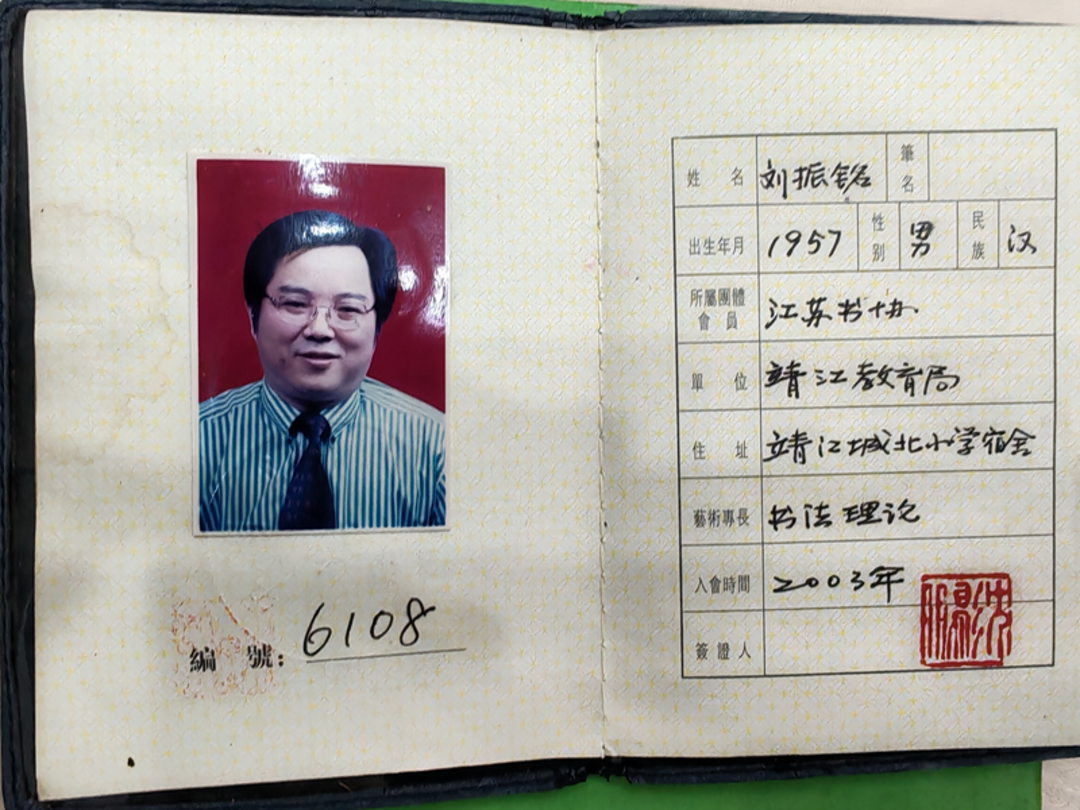 編 號：6108
姓 名 刘振铭 筆名
出生年月 1957 性别 男 民族 汉
所屬團體會員 江苏书协
單 位 靖江教育局
住 址 靖江城北小学宿舍
藝術專長 书法理论
入會時間 2003年
簽證人